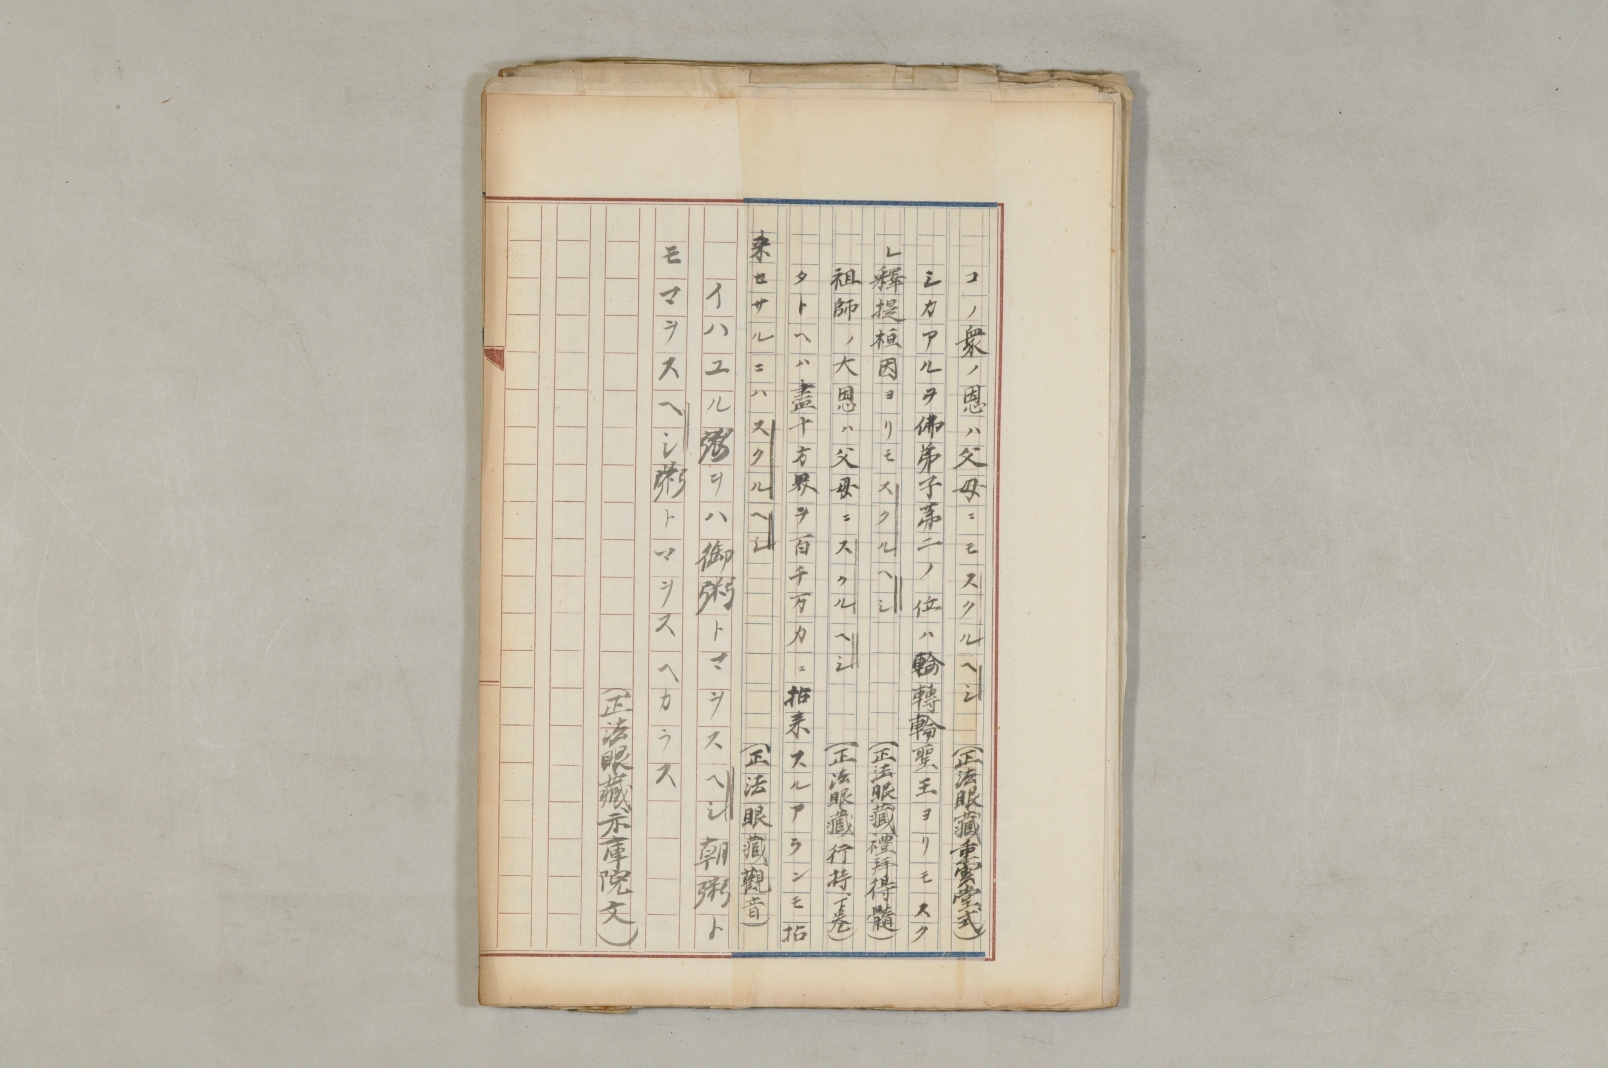 コノ衆ノ恩ハ父母ニモスクルヘシ(正法眼藏重雲堂式)
シカアルヲ佛弟子第二ノ位ハ輪轉輪聖王ヨリモスク
レ釋提桓因ヨリモスクルヘシ(正法眼藏禮拜得髓)
祖師ノ大恩ハ父母ニスクルヘシ(正法眼藏行持、下卷)
タトヘハ盡十方界ヲ百千万カニ拈来スルアランモ拈
来セサルニハスクルヘシ(正法眼藏觀音)
イハユル粥ヲハ御粥トマヲスヘシ朝粥ト
モマヲスヘシ粥トマヲスヘカラス
(正法眼藏示庫院文)